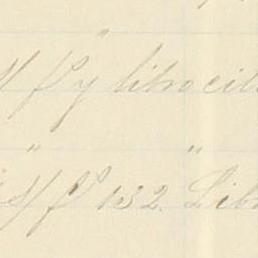 " "
s/f y libro cit
" "
s/f 132. Lib